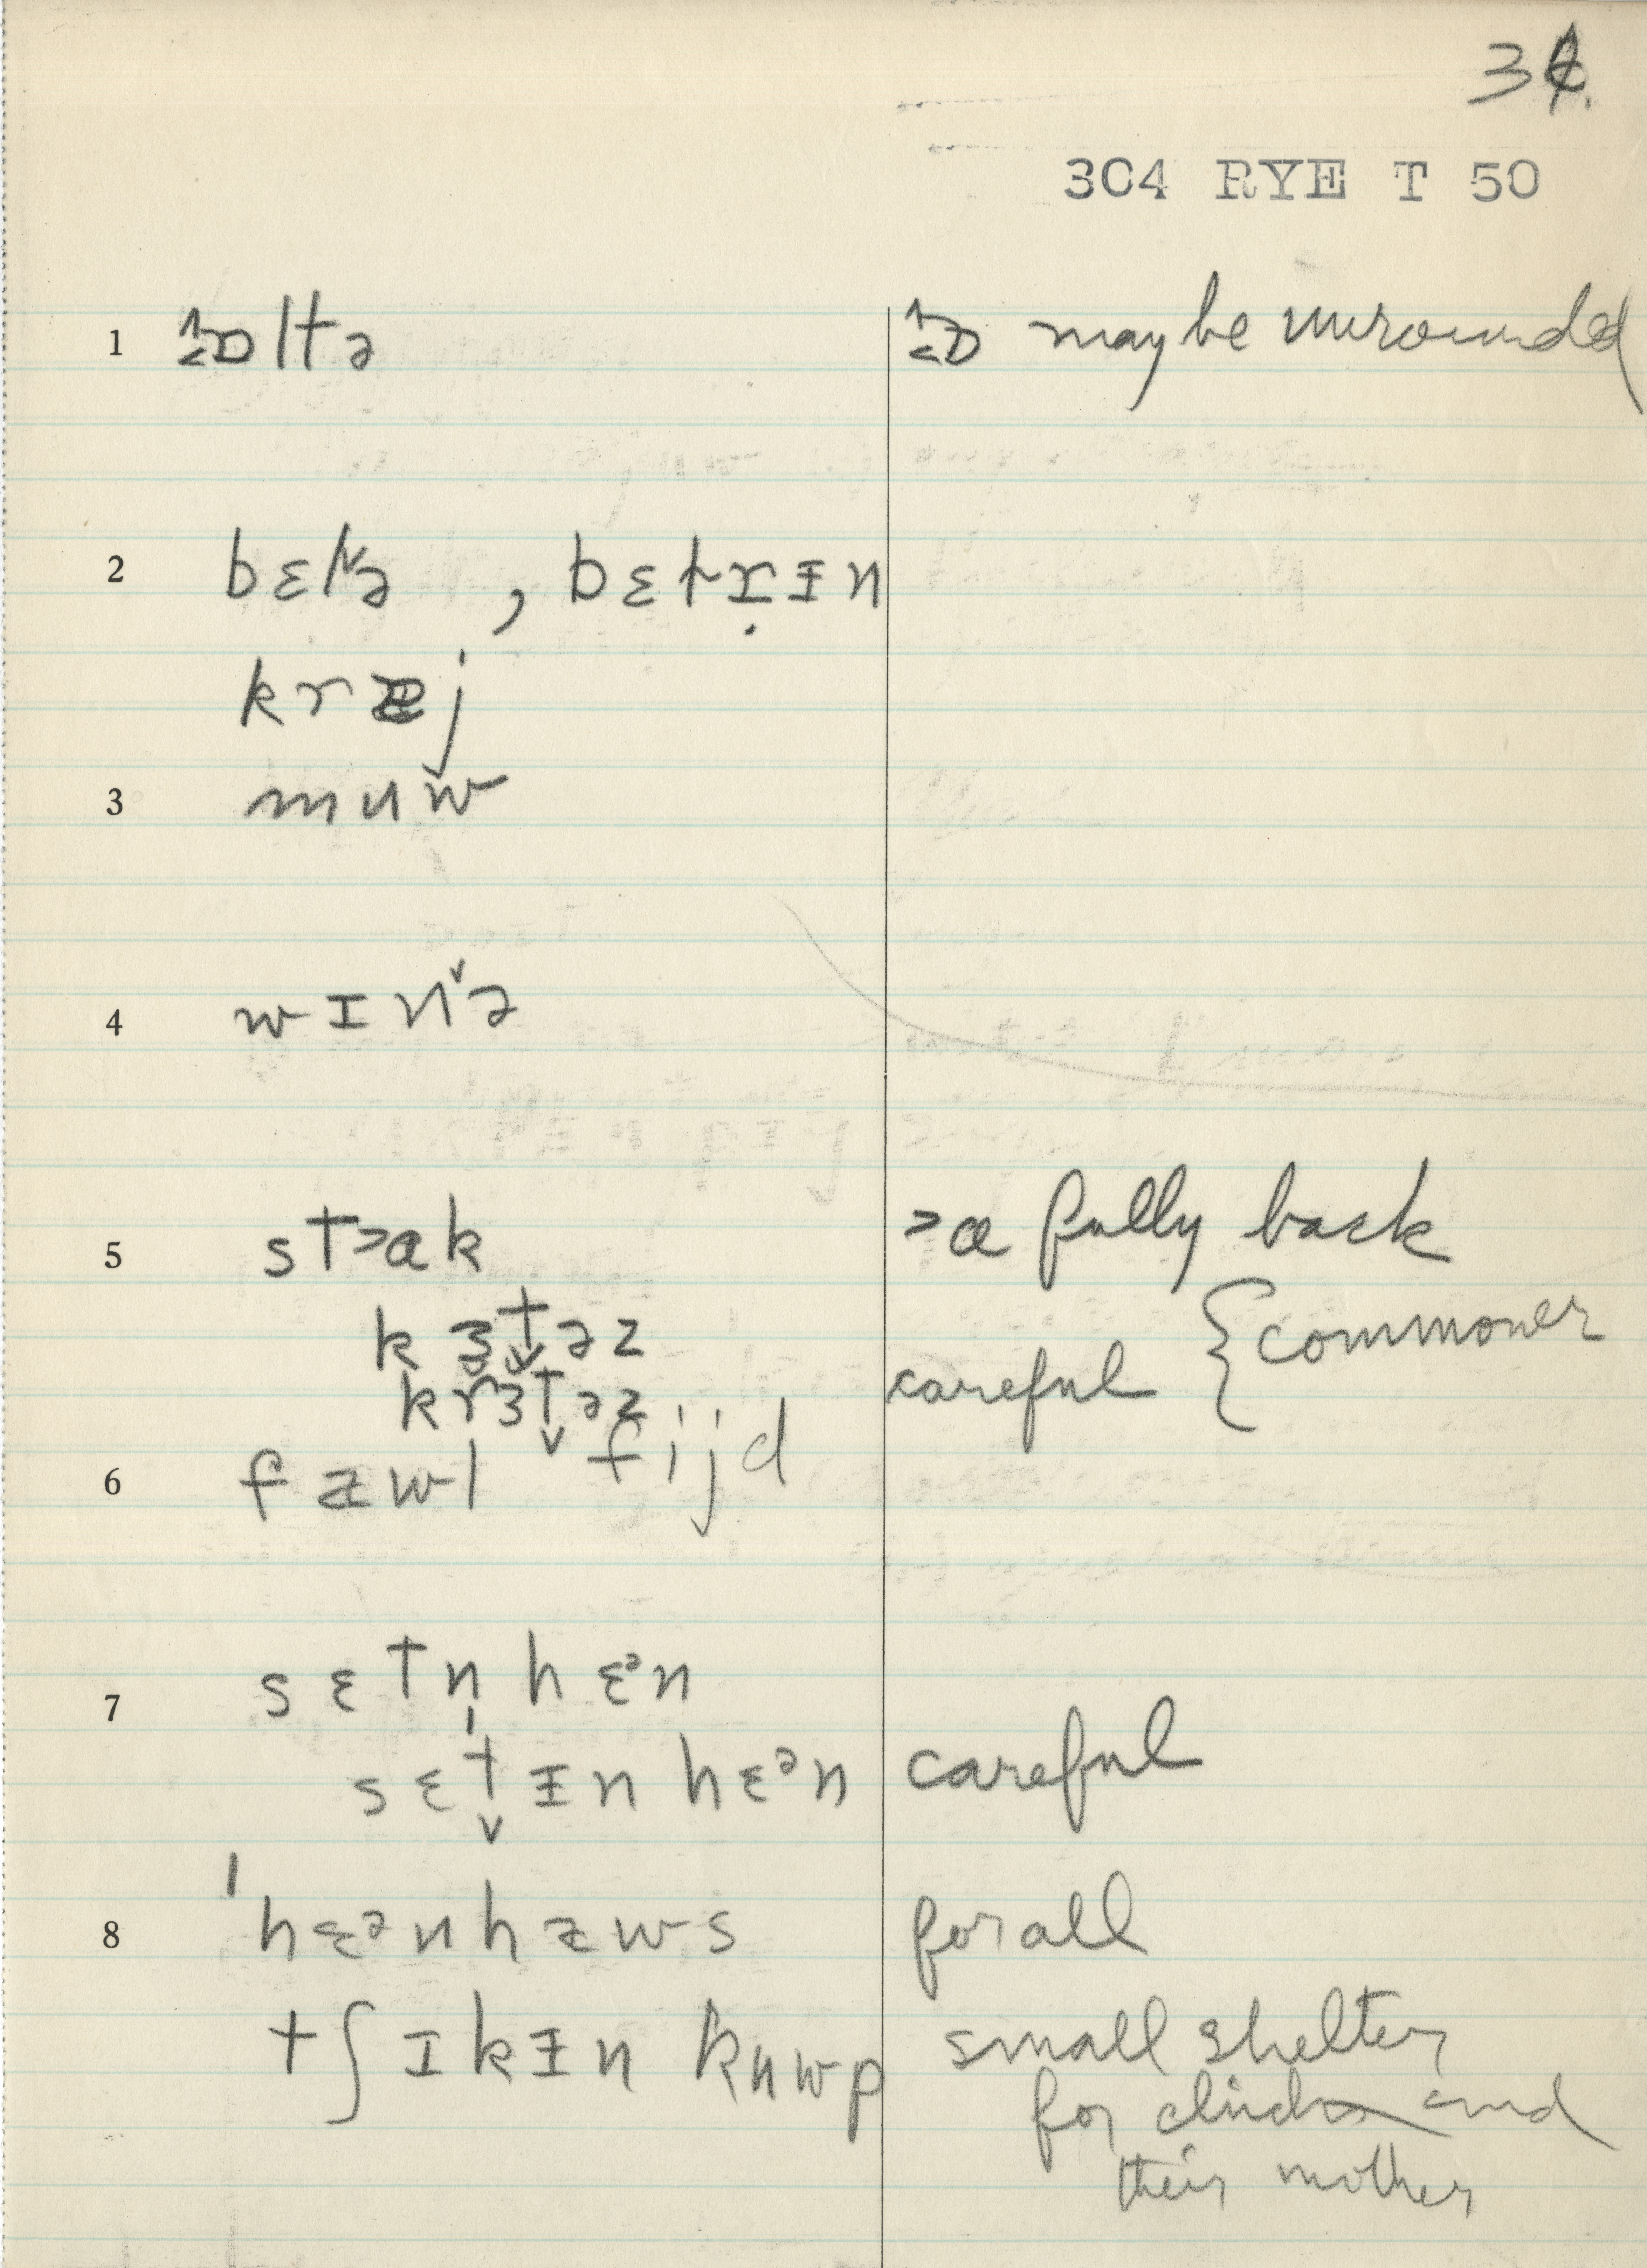 304 RYE T 50
1 ɒltə ɒ may be unrounded
2 bɛtə , bɛtrɨn
kræj
3 mʉw
4 wɪnə
5 st>ɑk >ɑ fully back
k ɜ t̬ ə z { commoner
k r ɜ t̬ ə z careful
6 f æ w l f i j d
7 s ɛ t n̩ h ɛᵊ n
s ɛ t̬ ɨ n h ɛᵊ n careful
8 ˈh ɛᵊ n h æ w s for all
t ʃ ɪ k ɨ n k ʉ w p small shelter
for chicks and
their mother